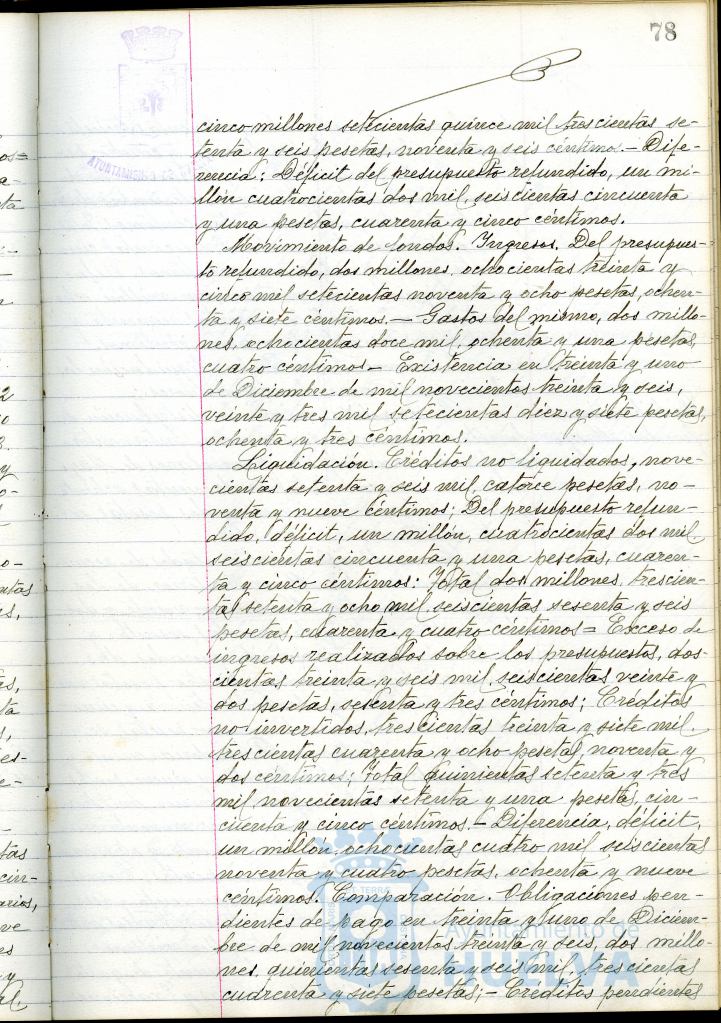 78
cinco millones setecientas quince mil trescientas se-
tenta y seis pesetas, noventa y seis céntimos.- Dife-
rencia: Déficit del presupuesto refundido, un mi-
llón cuatrocientas dos mil, seiscientas cincuenta
y una pesetas, cuarenta y cinco céntimos.
Movimiento de fondos. Ingresos. Del presupues-
to refundido, dos millones, ochocientas treinta y
cinco mil setecientas noventa y ocho pesetas, ochen-
ta y siete céntimos.- Gastos del mismo, dos millo-
nes, ochocientas doce mil, ochenta y una pesetas,
cuatro céntimos- Existencia en treinta y uno
de Diciembre de mil novecientos treinta y seis,
veinte y tres mil setecientas diez y siete pesetas,
ochenta y tres céntimos.
Liquidación. Créditos no liquidados, nove-
cientas setenta y seis mil, catorce pesetas, no-
venta y nueve céntimos; Del presupuesto refun-
dido, déficit, un millón, cuatrocientas dos mil
seiscientas cincuenta y una pesetas, cuaren-
ta y cinco céntimos: Total dos millones, trescien-
tas setenta y ocho mil seiscientas sesenta y seis
pesetas, cuarenta y cuatro céntimos= Exceso de
ingresos realizados sobre los presupuestos, dos-
cientas treinta y seis mil, seiscientas veinte y
dos pesetas, sesenta y tres céntimos; Créditos
no invertidos, trescientas treinta y siete mil.
trescientas cuarenta y ocho pesetas, noventa y
dos céntimos; Total quinientas setenta y tres
mil, novecientas setenta y una pesetas, cin-
cuenta y cinco céntimos.- Diferencia, déficit,
un millón, ochocientas cuatro mil seiscientas
noventa y cuatro pesetas, ochenta y nueve
céntimos. Comparación. Obligaciones pen-
dientes de pago en treinta y uno de Diciem-
bre de mil novecientos treinta y seis, dos millo-
nes, quinientas sesenta y seis mil, trescientas
cuarenta y siete pesetas;- Créditos pendientes
Ayuntamiento de
HUELVA